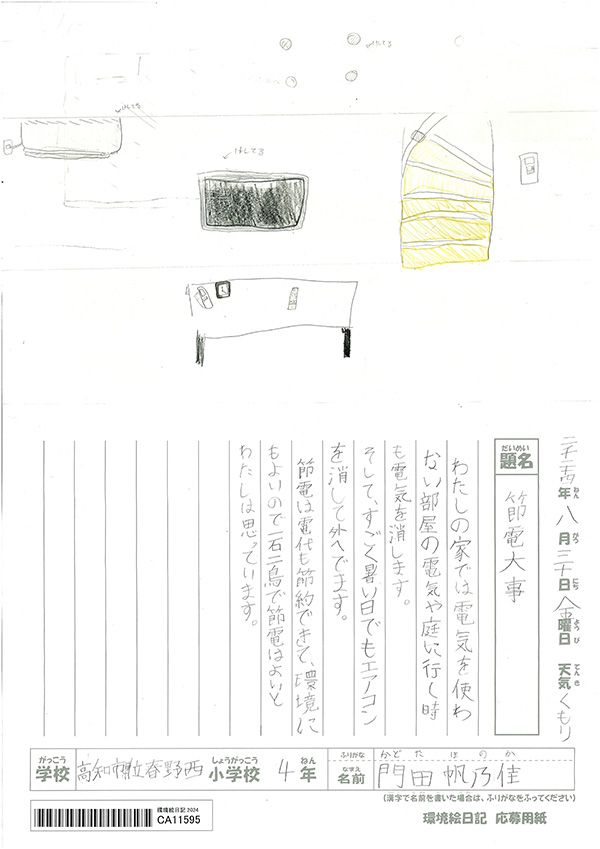 けしてる
けしてる
けしてる
二千二十四年八月三十日金曜日 天気くもり
ねん がつ にち ようび てんき
だいめい
題名
節電大事
わたしの家では電気を使わ
ない部屋の電気や庭に行く時
も電気を消します。
そして、すごく暑い日でもエアコン
を消して外へでます。
節電は電代も節約できて、環境に
もよいので一石二鳥で節電はよいと
わたしは思っています。
がっこう しょうがっこう ねん
学校 高知市立春野西 小学校 4 年
ふりがな かどた ほのか
なまえ
名前 門田帆乃佳
(漢字で名前を書いた場合は、ふりがなをふってください)
環境絵日記 2024
CA11595
環境絵日記 応募用紙